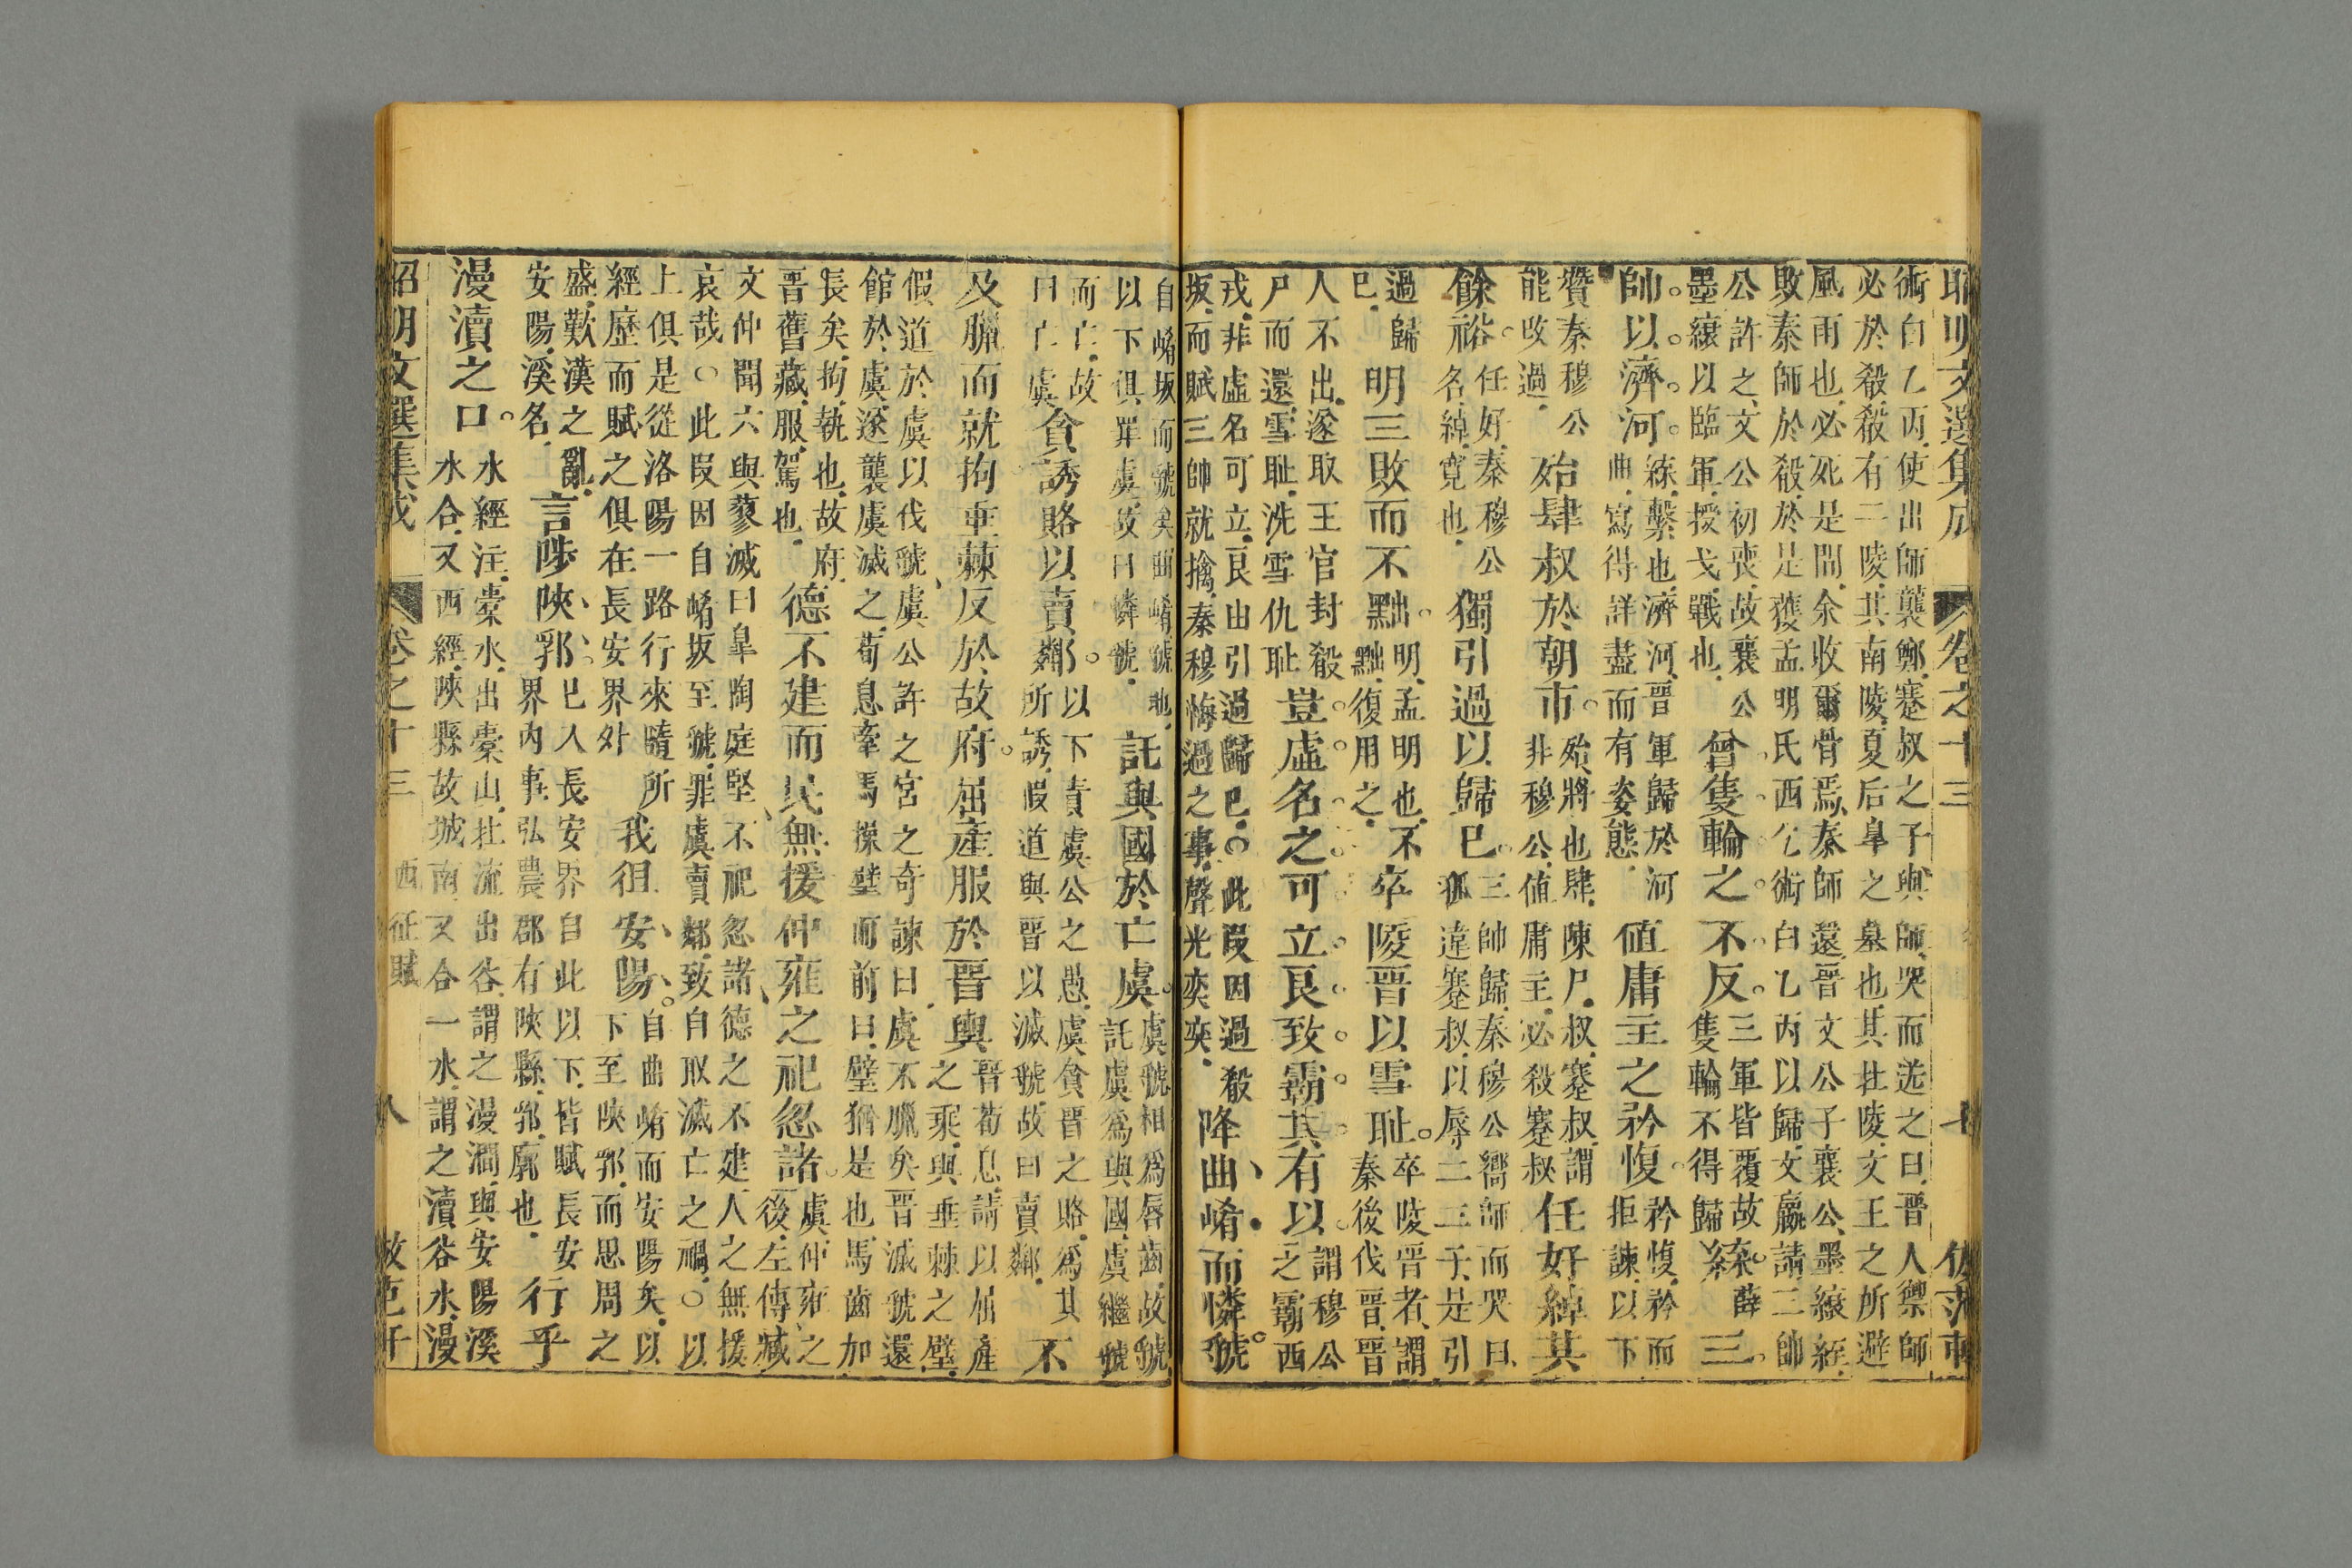 昭明文選集成 卷之十三 七
術白乙丙使出師襲鄭蹇叔之子與師哭而送之曰晉人禦師
必於殽殽有二陵其南陵夏后皐之墓也其北陵文王之所避
風雨也必死是間余收爾骨焉秦師還晉文公子襄公墨縗絰
敗秦師於殽於是獲孟明氏西乞術白乙丙以歸文嬴請三帥
公許之文公初喪故襄公
墨縗以臨軍授戈戰也
曾隻輪之不反
三軍皆覆故
隻輪不得歸
緤薛三
帥以濟河
緤繫也濟河晉軍歸於河
曲寫得詳盡而有姿態
値庸主之矜愎
矜愎矜而
拒諫以下
贊秦穆公
能改過
殆肆叔於朝市
殆將也肆陳尸叔蹇叔謂
非穆公値庸主必殺蹇叔
任好綽其
餘裕
任好秦穆公
名綽寛也
獨引過以歸已
三帥歸秦穆公嚮師而哭曰
孤違蹇叔以辱二三子是引
過歸
已
明三敗而不黜出
明孟明也不
黜復用之
卒陵晉以雪耻
卒陵晉者謂
秦後伐晉晉
人不出遂取王官封殽
尸而還雪耻洗雪仇耻
豈虛名之可立良致霸其有以
謂穆公
之霸西
戎非虛名可立良由引過歸已○此叚因過殽
坂而賦三帥就擒秦穆悔過之事聲光奕奕
降曲崤而憐虢
自崤坂而虢矣曲崤虢地
以下俱罪虞故曰憐虢
託與國於亡虞
虞虢相爲唇齒故虢
託虞爲與國虞繼虢
而亡故
曰亡虞
貪誘賂以賣鄰
以下責虞公之愚虞貪晉之賂爲其
所誘假道與晉以滅虢故曰賣鄰
不
及臘而就拘垂棘反於故府屈產服於晉輿
晉荀息請以屈產
之乘與垂棘之璧
假道於虞以伐虢虞公許之宮之奇諫曰虞不臘矣晉滅虢還
館於虞遂襲虞滅之荀息牽馬操璧而前曰璧猶是也馬齒加
長矣拘執也故府
晉舊藏服駕也
德不建而民無援仲雍之祀忽諸
虞仲雍之
後左傳臧
文仲聞六與蓼滅曰皐陶庭堅不祀忽諸德之不建人之無援
哀哉○此叚因自崤坂至虢罪虞賣鄰致自取滅亡之禍○以
上俱是從洛陽一路行來隨所
經歷而賦之俱在長安界外
我徂安陽
自曲崤而安陽矣以
下至陝郛而思周之
盛歎漢之亂
安陽溪名
言陟陝郛
已入長安界自此以下皆賦長安
界內事弘農郡有陝縣郛廓也
行乎
漫瀆之口
水經注橐水出橐山北流出谷謂之漫澗與安陽溪
水合又西經陝縣故城南又合一水謂之瀆谷水漫
昭明文選集成 卷之十三 西征賦 八